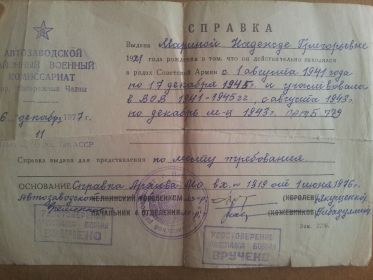 СПРАВКА
АВТОЗАВОДСКОЙ
РАЙОННЫЙ ВОЕННЫЙ
КОМИССАРИАТ
гор. Набережные Челны
6 декабря 1977 г.
11
ТАССР
Выдана Мариной Надежде Григорьевне
1921 года рождения в том, что он действительно находился
в рядах Советской Армии с 1 августа 1941 года
по 17 декабря 1945 г. и участвовала
в ВОВ 1941-1945 гг. с августа 1943 г.
по декабрь м-ц 1943 г.
Справка выдана для представления по месту требования
ОСНОВАНИЕ Справка Архива МО вх. № 1319 от 1 июня 1976 г.
Автозаводско ЧЕЛНИНСКИЙ ГОРВОЕНКОМ
(КОРОЛЕВ)
НАЧАЛЬНИК 4 ОТДЕЛЕНИЯ
(КОЖЕВНИКОВ)
УДОСТОВЕРЕНИЕ
УЧАСТНИКА ВОЙНЫ
ВРУЧЕНО
ВРУЧЕНО